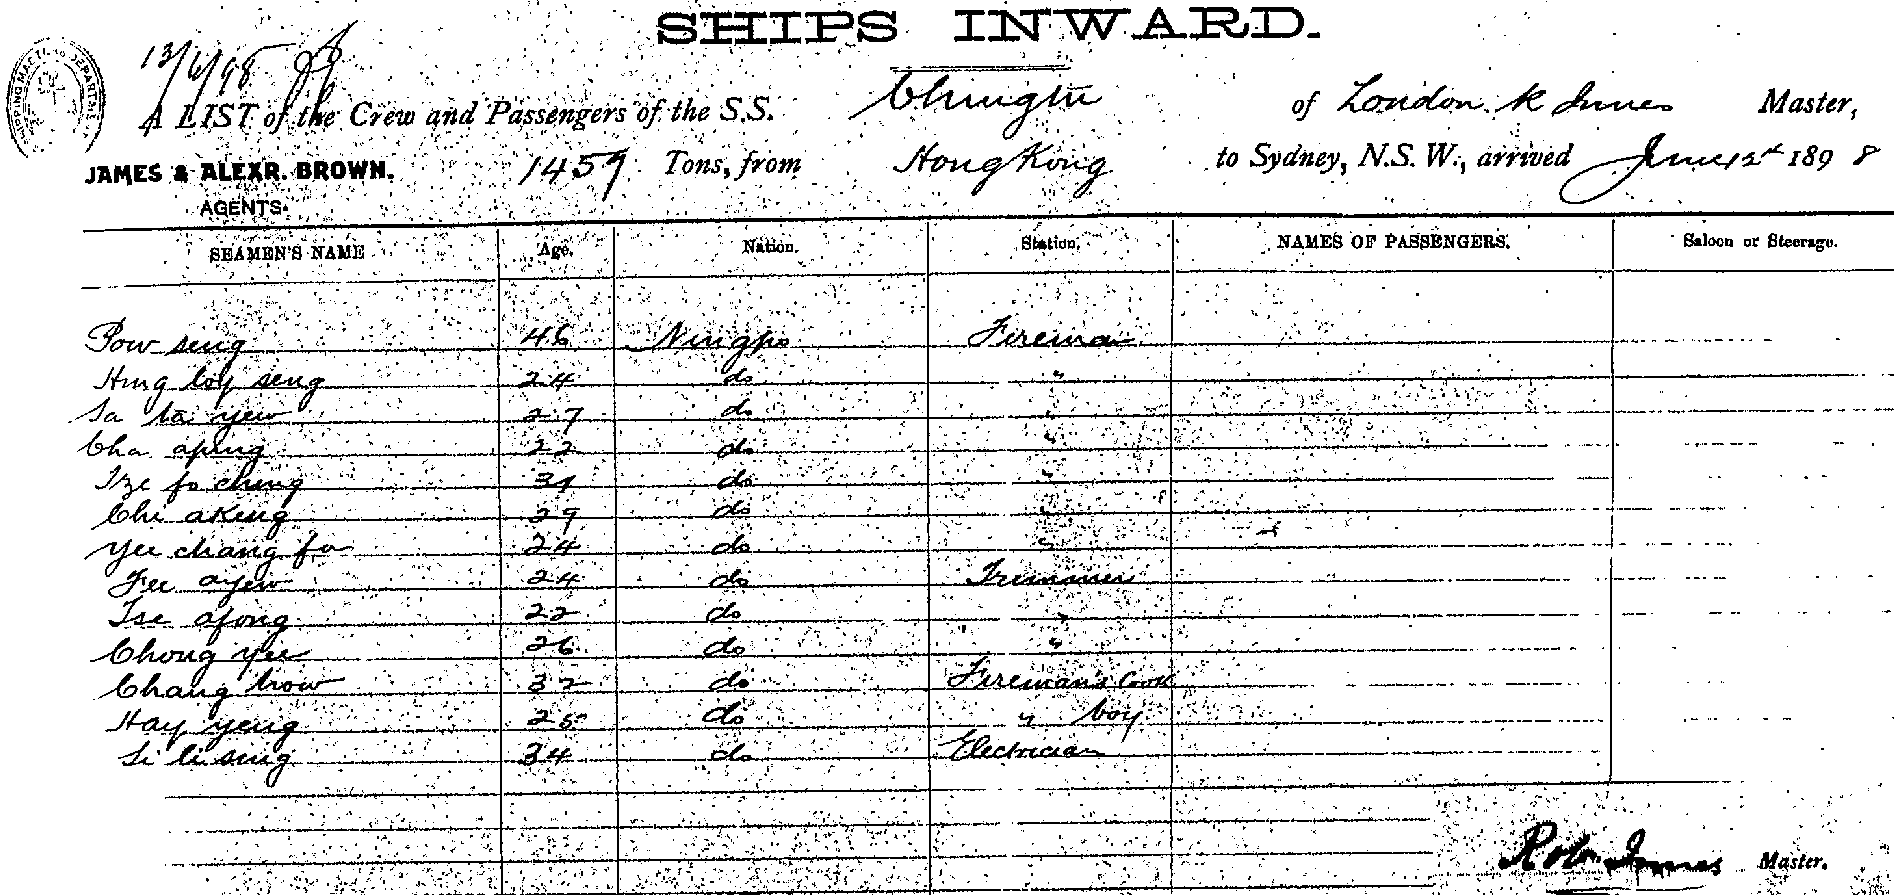 SHIPS INWARD.
13/6/98
A LIST of the Crew and Passengers of the S.S. Chingtu of London R Innes Master,
JAMES & ALEXR. BROWN. 1459 Tons, from Hong Kong to Sydney, N.S.W., arrived June 12th 1898
AGENTS.
SEAMEN'S NAME Age. Nation. Station. NAMES OF PASSENGERS. Saloon or Steerage.
Pow seng 46 Ningpo Fireman
Hung loy seng 24 do "
Sa ta yew 27 do "
Cha aping 22 do "
Tze fo ching 31 do "
Chi akeng 29 do "
Yee chang fo 24 do "
Fee ayew 24 do Trimmer
Tse afong 22 do "
Chong yee 26 do "
Chang how 32 do Fireman's Cook
Hay yeng 25 do " boy
Si li sing 34 do Electrician
Robt Innes Master.